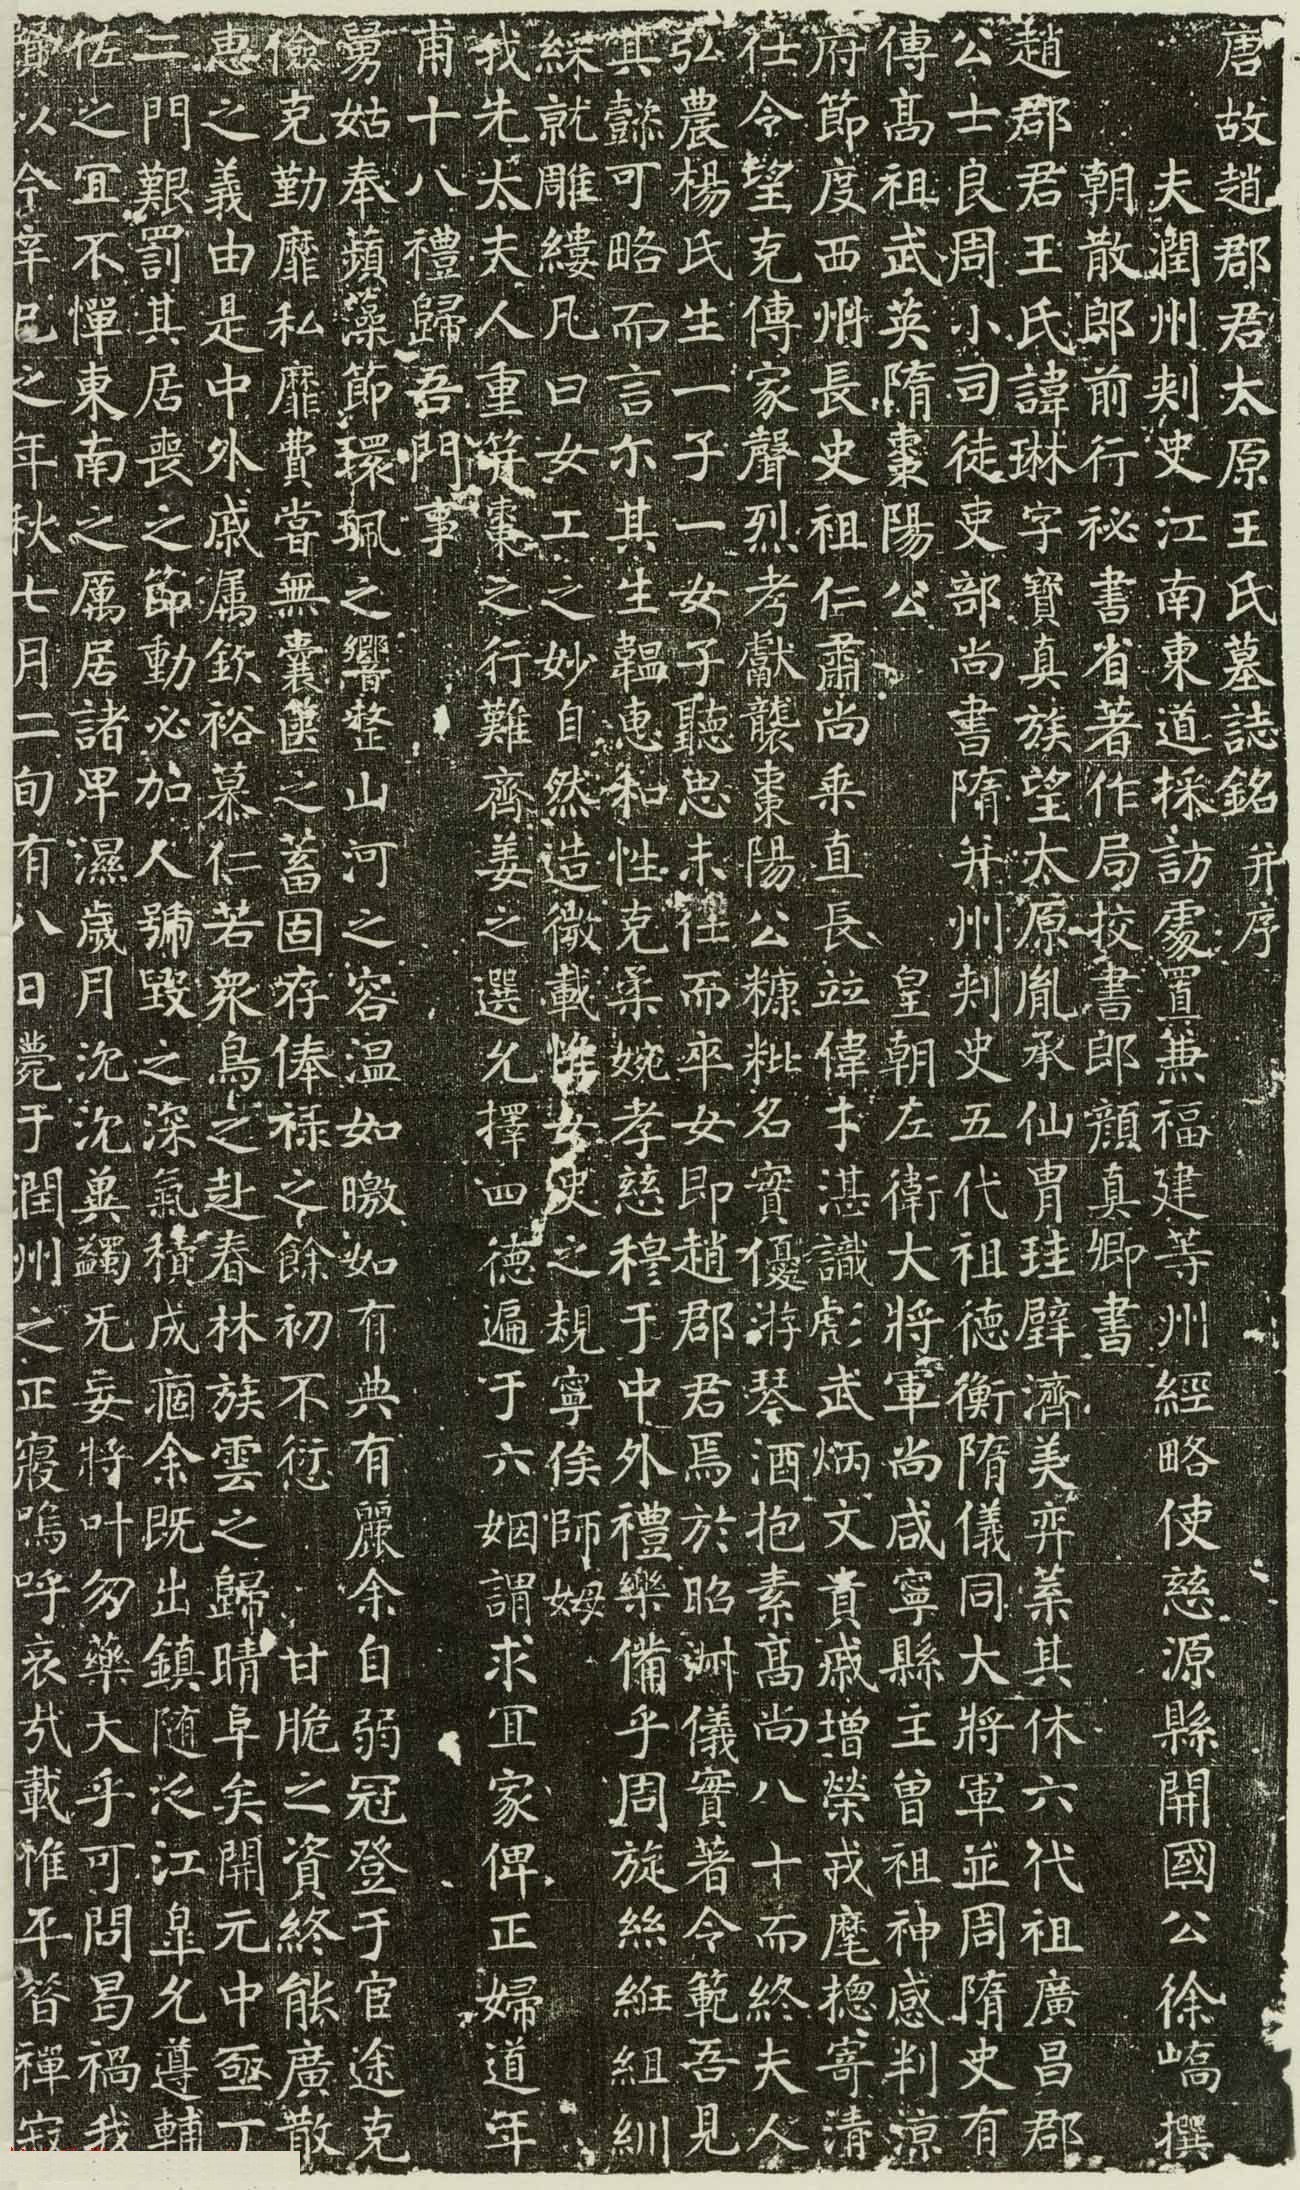 唐故趙郡君太原王氏墓誌銘并序
夫潤州刺史江南東道採訪處置兼福建等州經略使慈源縣開國公徐嶠撰
朝散郎前行祕書省著作局挍書郎顏真卿書
趙郡君王氏諱琳字寶真族望太原胤承仙胄珪璧濟美弈葉其休六代祖廣昌郡
公士良周小司徒吏部尚書隋并州刺史五代祖德衡隋儀同大將軍並周隋史有
傳高祖武英隋棗陽公皇朝左衛大將軍尚咸寧縣主曾祖神感判涼
府節度西州長史祖仁肅尚乘直長竝偉才湛識彪武炳文賁戚增榮戎麾揔寄清
仕令望克傳家聲烈考獻襲棗陽公糠粃名實優游琴酒抱素高尚八十而終夫人
弘農楊氏生一子一女子聽思未仕而卒女即趙郡君焉於昭淑儀實著令範吾見
其懿可略而言尒其生韞惠和性克柔婉孝慈穆于中外禮樂備乎周旋絲絍組紃
綵就雕縷凡曰女工之妙自然造微載惟女史之規寧俟師姆
我先太夫人重笄棗之行難齊姜之選允擇四德遍于六姻謂求宜家俾正婦道年
甫十八禮歸吾門事
舅姑奉蘋藻節環珮之響整山河之容温如曒如有典有麗余自弱冠登于宦途克
儉克勤靡私靡費嘗無囊篋之蓄固存俸禄之餘初不愆甘脆之資終能廣散
惠之義由是中外戚属欽裕慕仁若衆鳥之赴春林族雲之歸晴阜矣開元中亟丁
二門艱罰其居喪之節動必加人號毀之深氣積成痼余既出鎮随泛江皐允遵輔
佐之宜不憚東南之厲居諸卑濕歲月沉沉兾蠲旡妄將叶勿藥大乎可問曷禍我
賢以今辛巳之年秋七月二旬有八日薨于潤州之正寢嗚呼哀㢤載惟平昔禪寂